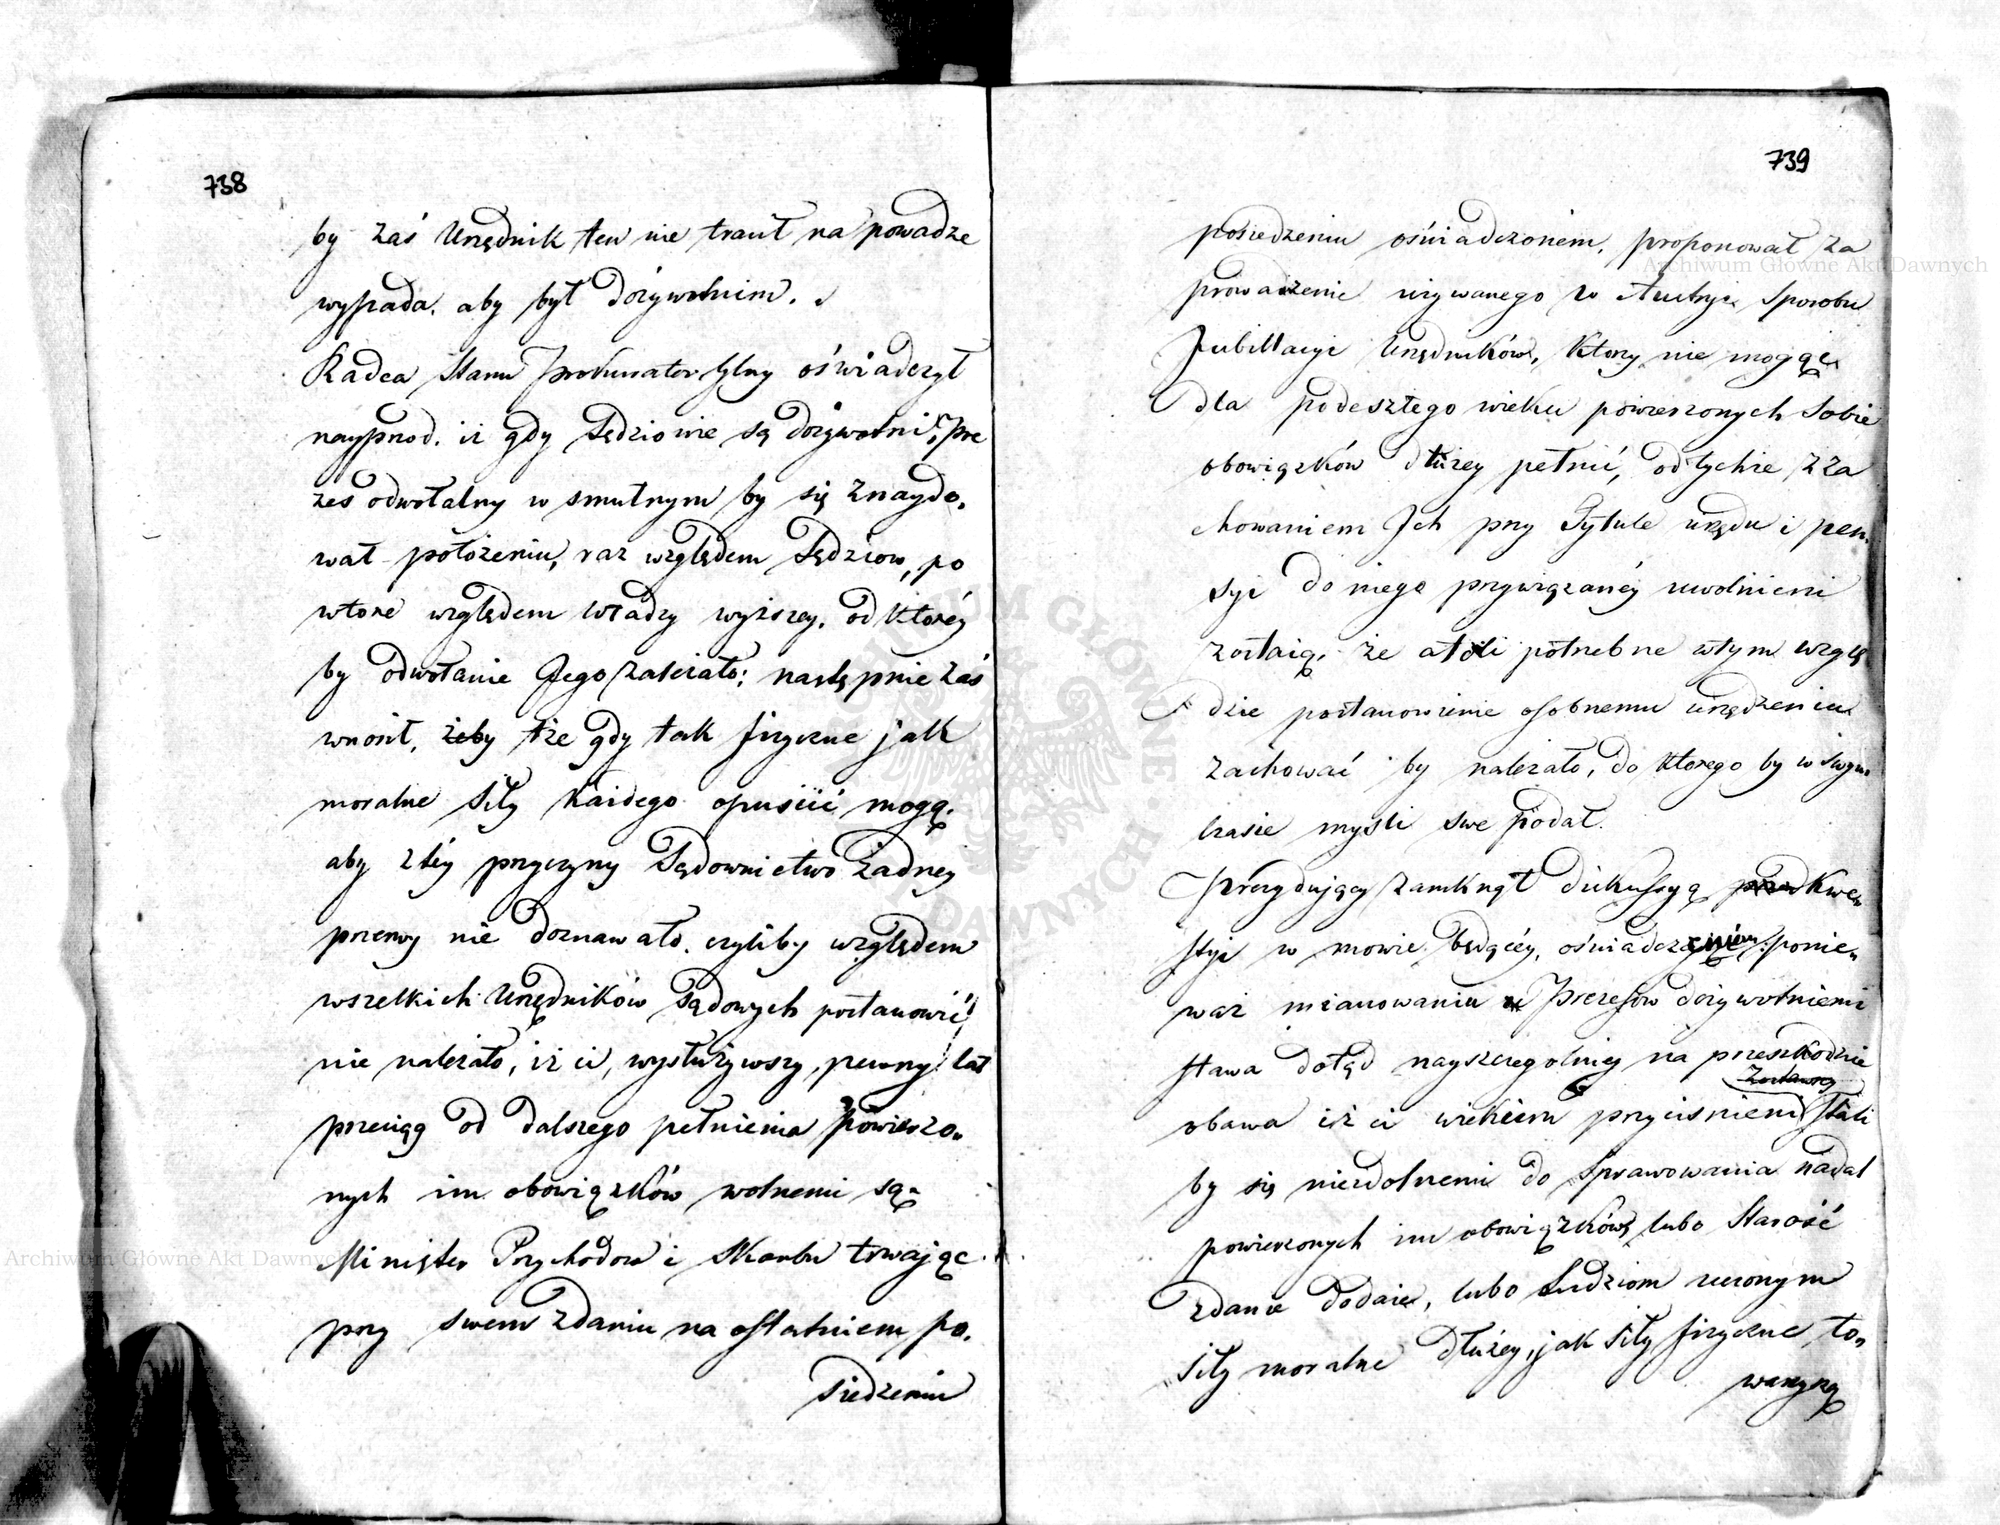 738
by zaś Urzędnik ten nie tracił na powadze
wypada, aby był dożywotnim.
Radca Stanu Prokurator Glny oświadczył
nayprzod, iż gdy Sędziowie są dożywotni, Pre
zes odwołalny w smutnym by się znaydo,
wał położeniu, raz względem Sędziow, po
wtore względem władzy wyższey, od ktoréy
by odwołanie Jego zależało; następnie zaś
wnosił, żeby że gdy tak fizyczne jak
moralne siły każdego opuścić mogą,
aby z téy przyczyny Sądownictwo żadney
przerwy nie doznawało, czyliby względem
wszelkich Urzędników Sądowych postanowić
nie należało, iż ci, wysłużywszy, pewny lat
przeciąg od dalszego pełnienia powierzo„
nych im obowiązków wolnemi są„
Minister Przychodow i Skarbu trwając
przy swem zdaniu na ostatniem po,
siedzeniu
739
posiedzeniu oświadczonem, proponował za
prowadzenie używanego w Austryi sposobu
Jubillacyi Urzędników, ktorzy nie mogąc
dla podeszłego wieku powierzonych sobie
obowiązków dłużey pełnić, odtychże z za
chowaniem Ich przy Tytule urzędu i pen,
syi do niego przywiązanéy uwolnieni
zostaią, że atoli potrzebne w tym wzglę
dzie postanowienie osobnemu urządzeniu
zachować by należało, do ktorego by w swym
czasie myśli swe podał.
Prezydujący zamknął dyskussyą kwe„
styi w mowie będącéy, oświadczeniem ponie„
waż mianowaniu Prezesow dożywotniemi
stawa dotąd nayszczególniéy na przeszkodzie
zostawszy
obawa iż ci wiekiem przyciśnieni stali
by się niezdolnemi do sprawowania nadal
powierzonych im obowiązków, lubo Starość
zdanie dodaie, lubo Ludziom uczonym
siły moralne dłużéy, jak siły fizyczne, to„
warzyszą
Archiwum Główne Akt Dawnych
Archiwum Główne Akt Dawnych
ARCHIWUM GŁÓWNE AKT DAWNYCH